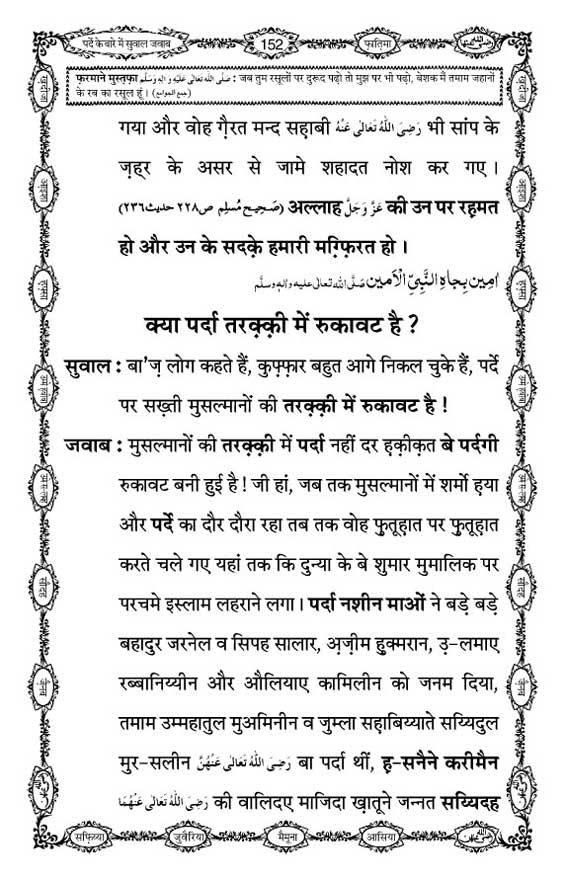 पर्दे के बारे में सुवाल जवाब
152
फ़ातिमा
फ़रमाने मुस्तफ़ा صَلَّى اللهُ تَعَالٰى عَلَيْهِ وَاٰلِهٖ وَسَلَّم : जब तुम रसूलों पर दुरूद पढ़ो तो मुझ पर भी पढ़ो, बेशक मैं तमाम जहानों
के रब का रसूल हूं। (جمع الجوامع)
गया और वोह ग़ैरत मन्द सहाबी رَضِىَ اللهُ تَعَالٰى عَنْهُ भी सांप के
ज़ह्र के असर से जामे शहादत नोश कर गए।
(صَحِيح مُسلِم ص٢٢٨ حديث٢٣٦) अल्लाह عَزَّ وَجَلَّ की उन पर रह़मत
हो और उन के सदक़े हमारी मग़्फ़िरत हो।
اٰمِين بِجَاهِ النَّبِيِّ الْاَمين صَلَّى اللهُ تعالٰى عليه واٰلهٖ وسلَّم
क्या पर्दा तरक़्क़ी में रुकावट है ?
सुवाल : बा'ज़ लोग कहते हैं, कुफ़्फ़ार बहुत आगे निकल चुके हैं, पर्दे
पर सख़्ती मुसल्मानों की तरक़्क़ी में रुकावट है !
जवाब : मुसल्मानों की तरक़्क़ी में पर्दा नहीं दर ह़क़ीक़त बे पर्दगी
रुकावट बनी हुई है ! जी हां, जब तक मुसल्मानों में शर्मो ह़या
और पर्दे का दौर दौरा रहा तब तक वोह फ़ुतूह़ात पर फ़ुतूह़ात
करते चले गए यहां तक कि दुन्या के बे शुमार मुमालिक पर
परचमे इस्लाम लहराने लगा। पर्दा नशीन माओं ने बड़े बड़े
बहादुर जरनेल व सिपह सालार, अ़ज़ीम हु़क्मरान, उ़-लमाए
रब्बानिय्यीन और औलियाए कामिलीन को जनम दिया,
तमाम उम्महातुल मुअमिनीन व जुम्ला सहाबिय्याते सय्यिदुल
मुर-सलीन رَضِىَ اللهُ تَعَالٰى عَنْهُنَّ बा पर्दा थीं, ह़-सनैने करीमैन
رَضِىَ اللهُ تَعَالٰى عَنْهُمَا की वालिदए माजिदा ख़ातूने जन्नत सय्यिदह
सफ़िय्या
जुवैरिया
मैमूना
आसिया